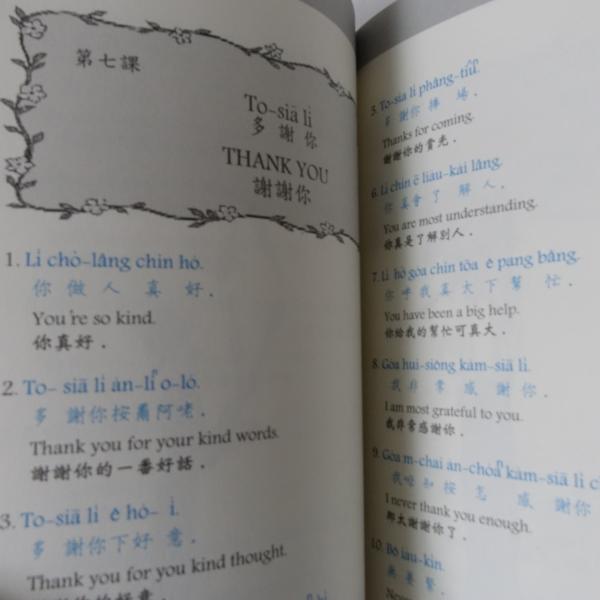 第七課
To-siā lí
多謝你
THANK YOU
謝謝你
1. Lí chò-lâng chin hó.
你做人真好.
You're so kind.
你真好.
2. To- siā lí án-
多謝你按爾阿咾.
Thank you for your kind words.
謝謝你的一番好話.
3. To-siā lí ê hó- ì.
多謝你下好意.
Thank you for you kind thought.
謝謝你的好意.
5. To-siā lí phâng-
多謝你捧場.
Thanks for coming.
謝謝你的賞光.
6. Lí chin ē liáu-kái lâng.
你真會了解人.
You are most understanding.
你真是了解別人.
7. Lí hō͘ góa chin tōa ê pang bâng.
你呼我真大下幫忙.
You have been a big help.
你給我的幫忙可真大.
8. Góa hui-siông kám-siā lí.
我非常感謝你.
I am most grateful to you.
我非常感謝你.
9. Góa m̄-chai án-chóaⁿ kám-siā lí
我唔知按怎感謝你
I never thank you enough.
那太謝謝你了.
10. Bô iàu-kín.
無要緊.